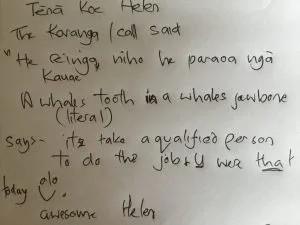 Tēnā Koe Helen
The Karanga / call said
"He eingā niho he paraoa ngā
Kauae
A whales tooth in a whales jawbone
(literal)
says:- its take a qualified person
to do the jobs wer that
today
awesome Helen